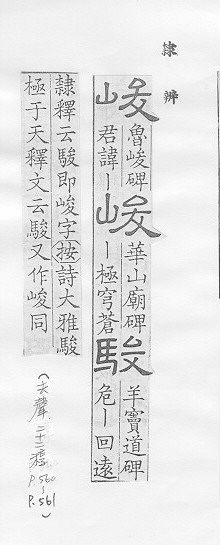 隸辨
峻
魯峻碑
君諱丨
峻
華山廟碑
丨極穹蒼
駿
羊竇道碑
危丨回遠
隸釋云駿即峻字按詩大雅駿
極于天釋文云駿又作峻同
(去聲二十二稕
P.560-
P.561)